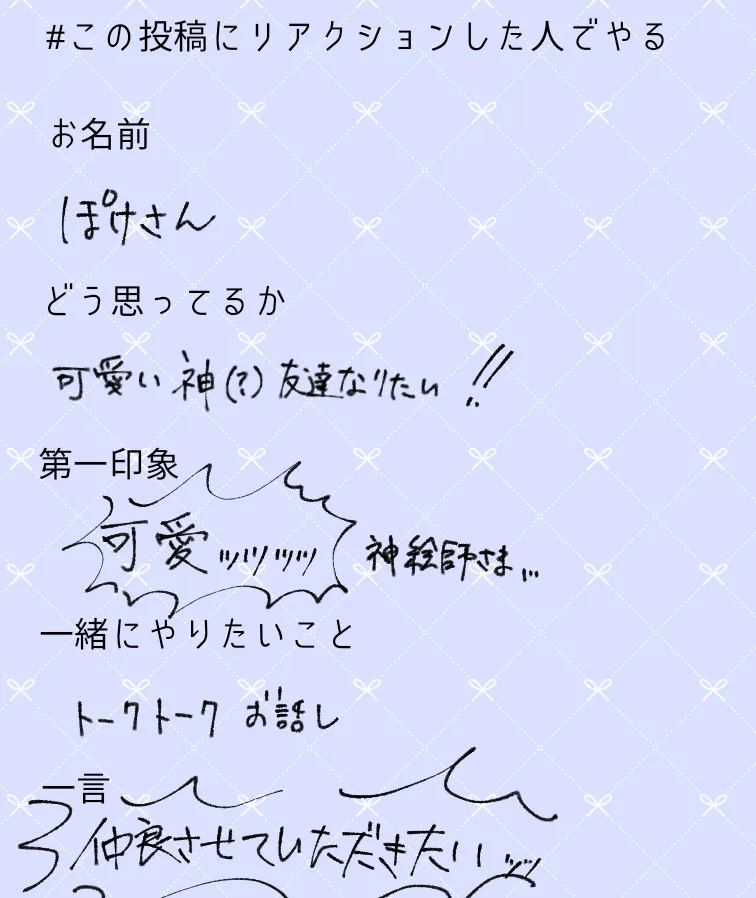 #この投稿にリアクションした人でやる
お名前
ぽけさん
どう思ってるか
可愛い神(?)友達なりたい!!
第一印象
可愛ッッッッ 神絵師さま...
一緒にやりたいこと
トークトーク お話し
一言
仲良させていただきたいッッ